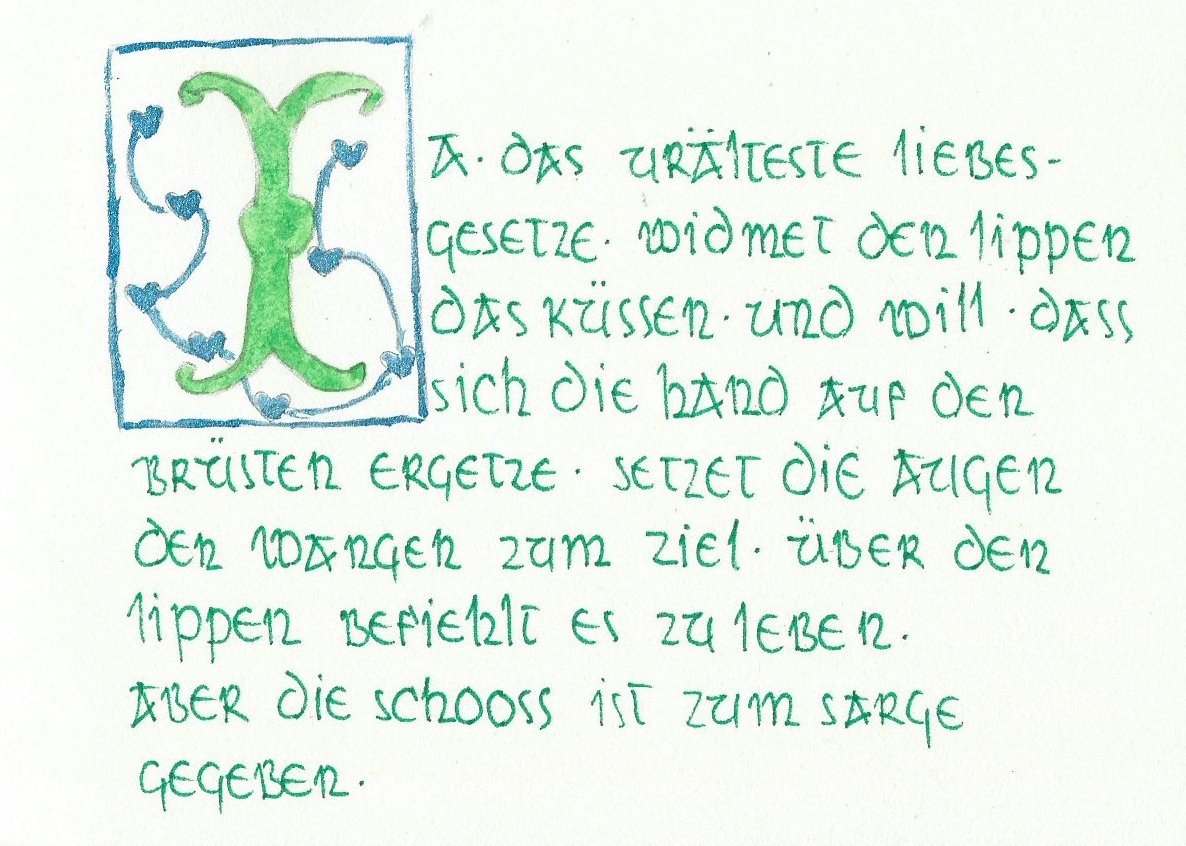 IA. DAS URÄLTESTE LIEBES-
GESETZE. WIDMET DEN LIPPEN
DAS KÜSSEN. UND WILL. DASS
SICH DIE HAND AUF DEN
BRÜSTEN ERGETZE. SETZET DIE AUGEN
DEN WANGEN ZUM ZIEL. ÜBER DEN
LIPPEN BEFIEHLT ES ZU LEBEN.
ABER DIE SCHOOSS IST ZUM SARGE
GEGEBEN.